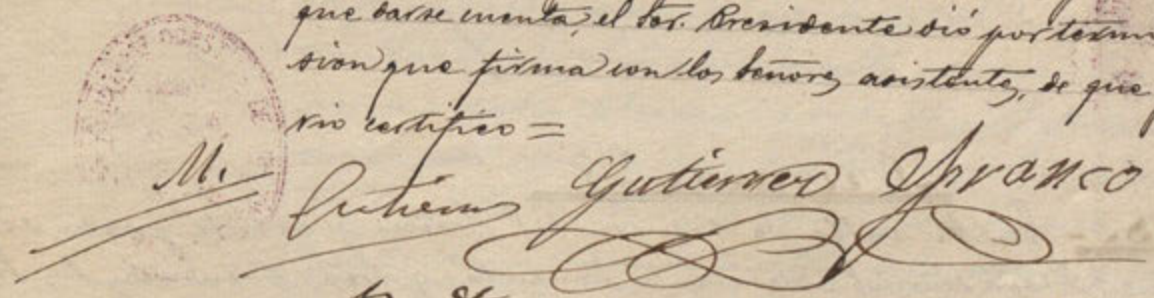 que darse cuenta, el Sor. Presidente dió por termi
sion que firma con los Señores asistentes, de que
rio certifico =
M. Gutierrez Gutierrez Franco